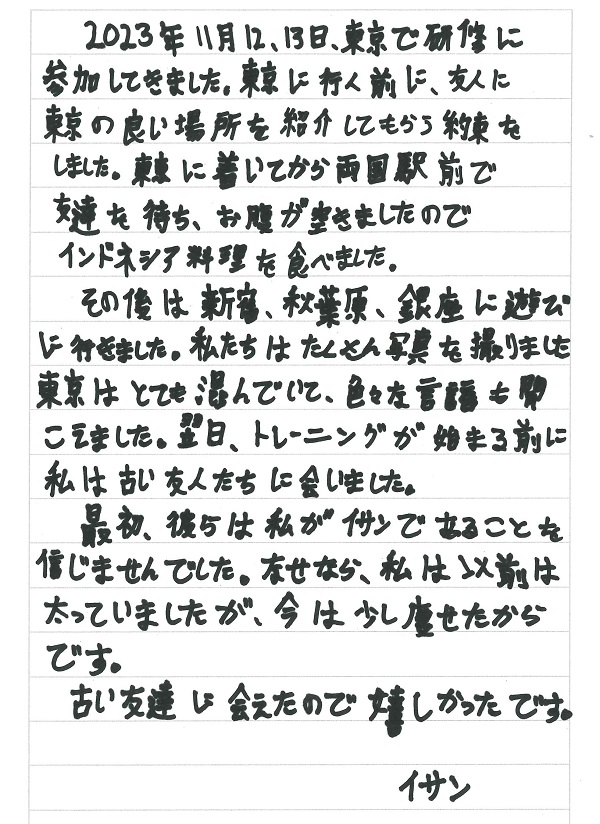 2023年11月12、13日、東京で研修に
参加してきました。東京に行く前に、友人に
東京の良い場所を紹介してもらう約束を
しました。東京に着いてから両国駅前で
友達を待ち、お腹が空きましたので
インドネシア料理を食べました。
その後は新宿、秋葉原、銀座に遊び
に行きました。私たちはたくさん写真を撮りました
東京はとても混んでいて、色々な言語も聞
こえました。翌日、トレーニングが始まる前に
私は古い友人たちに会いました。
最初、彼らは私がイサンであることを
信じませんでした。なぜなら、私は以前は
太っていましたが、今は少し痩せたから
です。
古い友達に会えたので嬉しかったです。
イサン